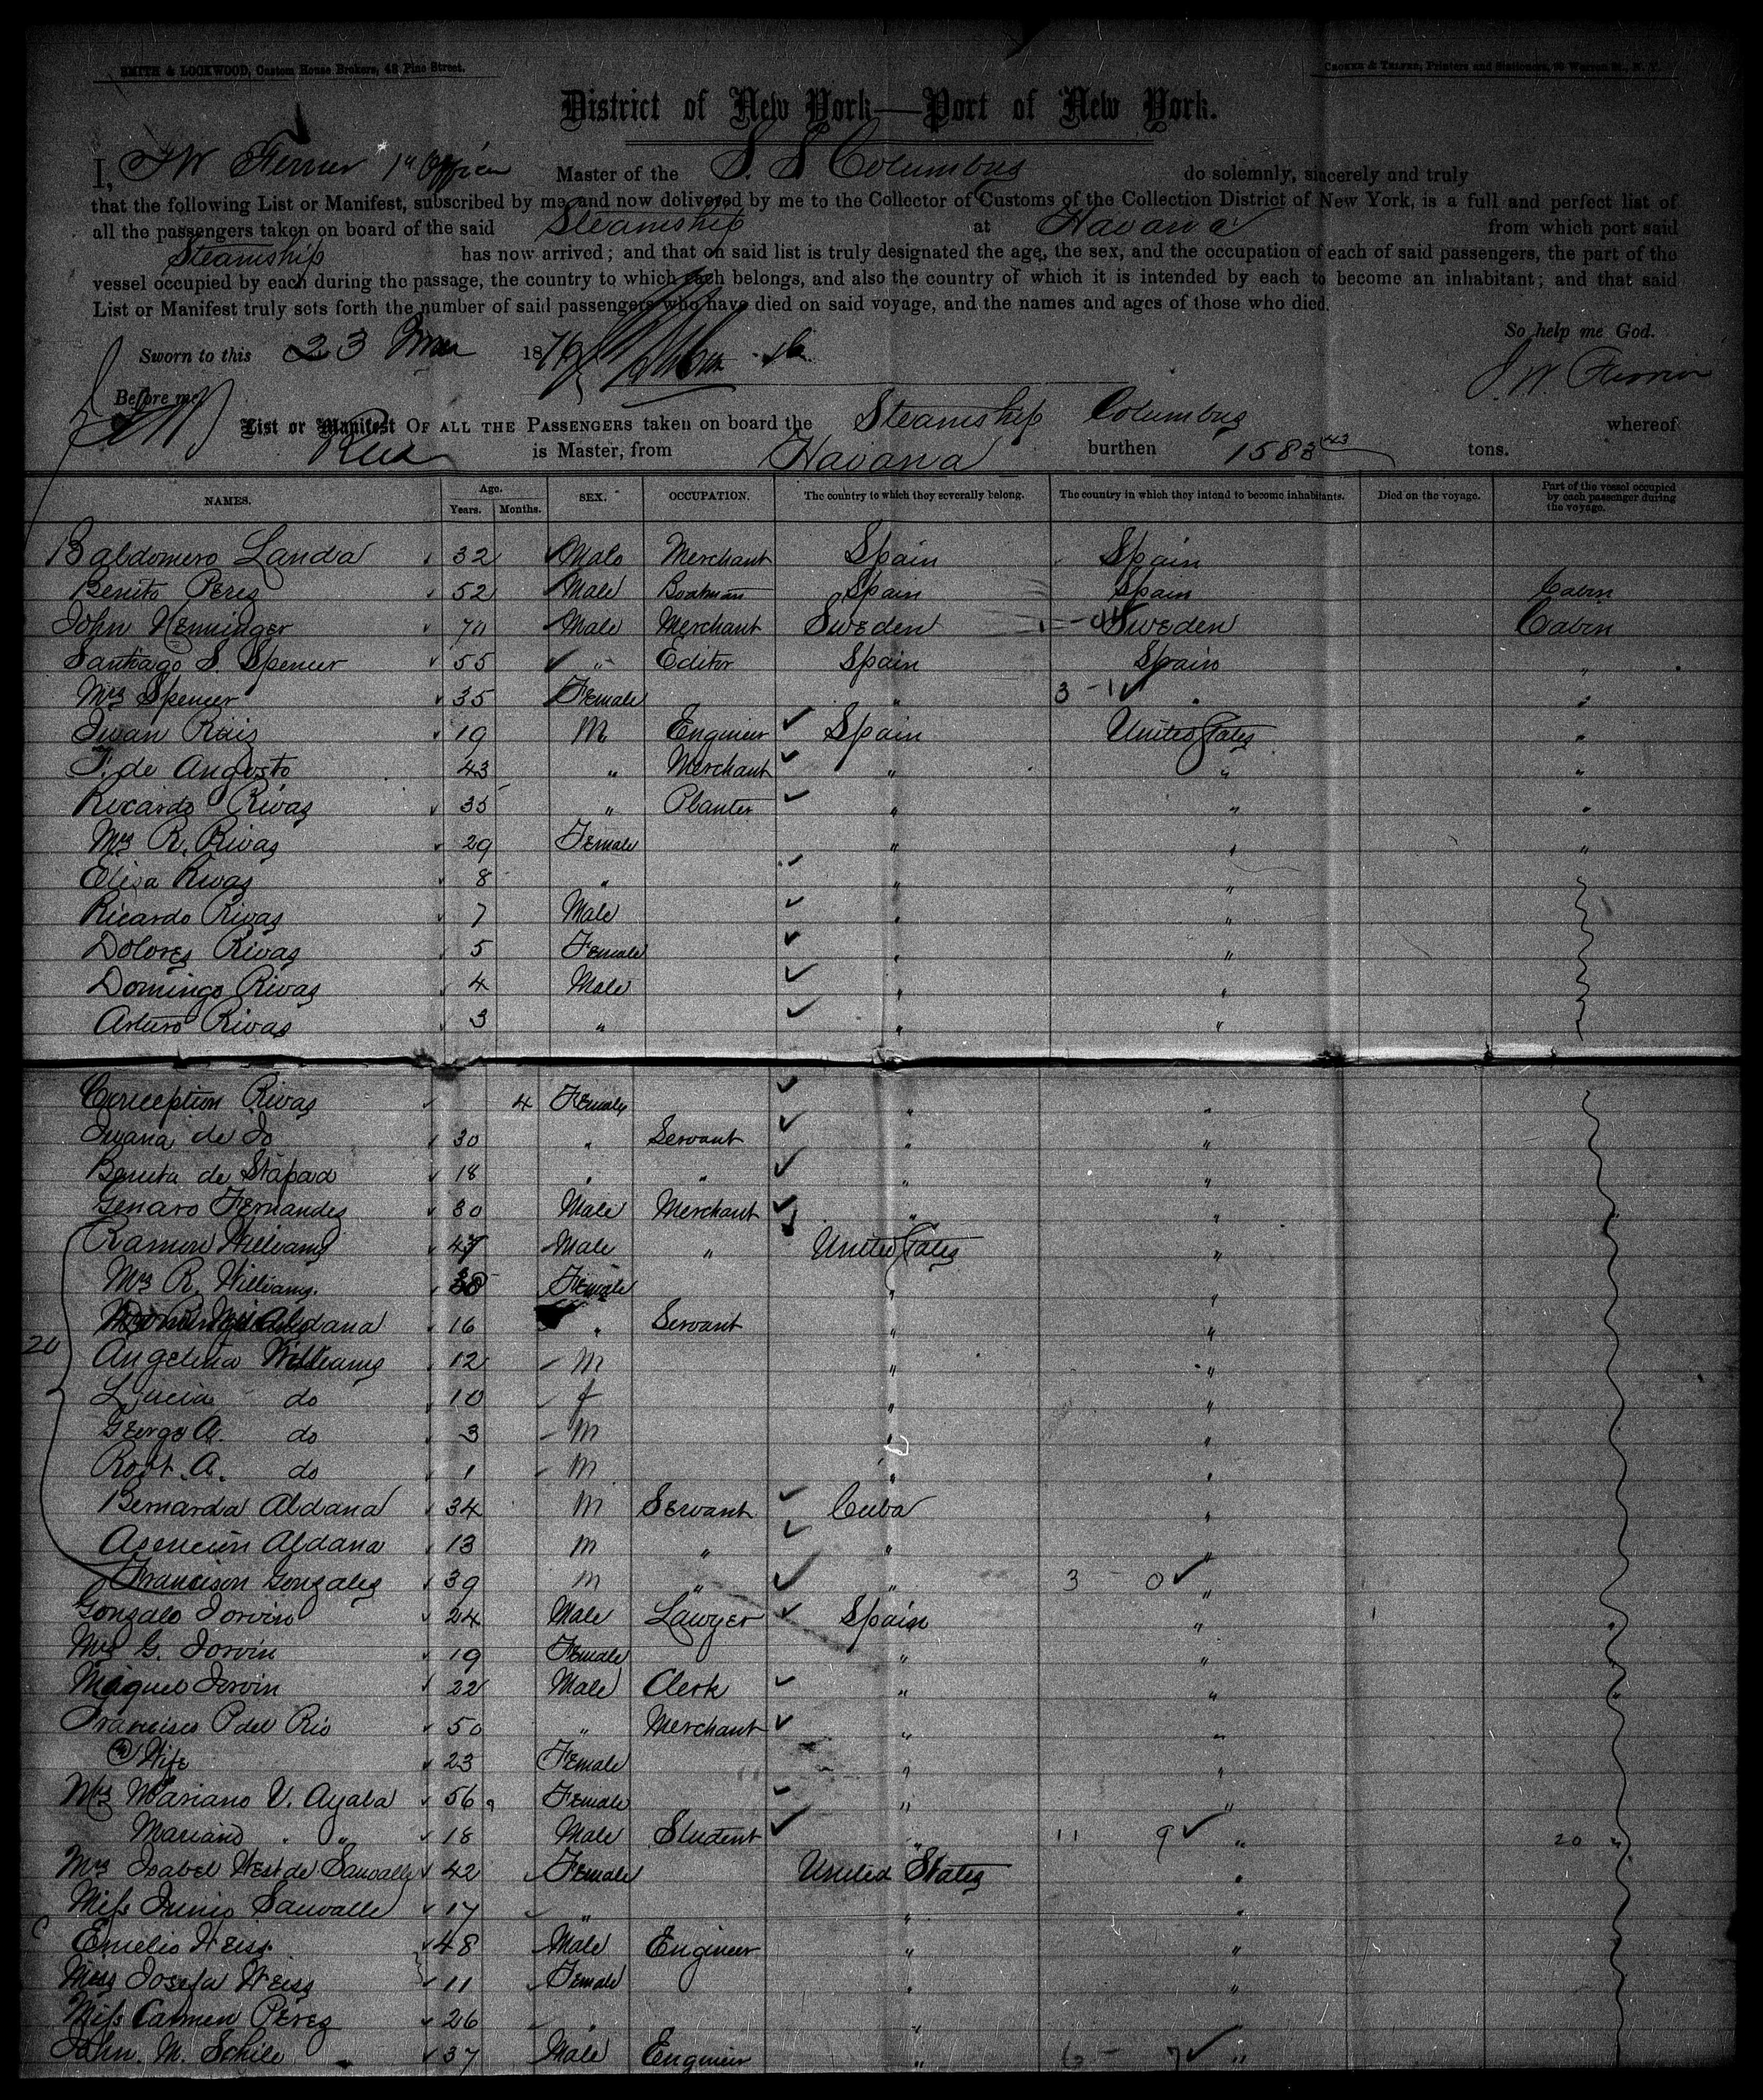 SMITH & LOCKWOOD, Custom House Brokers, 48 Pine Street.
CROKER & TELFER, Printers and Stationers, 90 Warren St., N. Y.
District of New York—Port of New York.
I, J W Ferrier 1st Officer Master of the S. S Columbus do solemnly, sincerely and truly
that the following List or Manifest, subscribed by me, and now delivered by me to the Collector of Customs of the Collection District of New York, is a full and perfect list of
all the passengers taken on board of the said Steamship at Havana from which port said
Steamship has now arrived; and that on said list is truly designated the age, the sex, and the occupation of each of said passengers, the part of the
vessel occupied by each during the passage, the country to which each belongs, and also the country of which it is intended by each to become an inhabitant; and that said
List or Manifest truly sets forth the number of said passengers who have died on said voyage, and the names and ages of those who died.
So help me God.
Sworn to this 23 1876
J. W. Ferrier
Before me
List or Manifest OF ALL THE PASSENGERS taken on board the Steamship Columbus whereof
is Master, from Havana burthen 1583 43 tons.
NAMES. Age. Years. Months. SEX. OCCUPATION. The country to which they severally belong. The country in which they intend to become inhabitants. Died on the voyage. Part of the vessel occupied by each passenger during the voyage.
Baldomero Landa 32 Male Merchant Spain Spain
Benito Perez 52 Male Boatman Spain Spain Cabin
John Henninger 70 Male Merchant Sweden Sweden Cabin
Santiago S. Spencer 55 " Editor Spain Spain "
Mrs Spencer 35 Female " 3 - 1 " "
Juan Ruiz 19 M Engineer Spain United States "
F. de Angosto 43 " Merchant " " "
Ricardo Rivas 35 " Planter " " "
Mrs R. Rivas 29 Female " " "
Elisa Rivas 8 " " "
Ricardo Rivas 7 Male " "
Dolores Rivas 5 Female " "
Domingo Rivas 4 Male " "
Arturo Rivas 3 " " "
Conception Rivas 4 Female " "
Juana de Jo 30 " Servant " "
Benita de Stapad 18 " " " "
Genaro Fernandez 30 Male Merchant " "
Ramon Williams 47 Male " United States "
Mrs R. Williams. 38 Female " "
Aldana 16 " Servant " "
20
Angelina Williams 12 M " "
Lucia do 10 f " "
George A. do 3 M " "
Robt. A. do 1 M " "
Bernarda Aldana 34 M Servant Cuba "
Asencion Aldana 13 M " " "
Francison Gonzales 39 M " " 3 - 0 "
Gonzalo Jorvin 24 Male Lawyer Spain "
Mrs G. Jorvin 19 Female " "
Miguel Jorvin 22 Male Clerk " "
Francisco P del Rio 50 " Merchant " "
Wife 23 Female " "
Mrs Mariano V. Ayala 56 Female " "
Mariano " " 18 Male Student " 11 9 " 20 "
Mrs Isabel West de Sauvalle 42 Female United States "
Miss Junio Sauvalle 17 " " "
C
Emelio Heiss 48 Male Engineer " "
Miss Josefa Heiss 11 Female " "
Miss Carmen Perez 26 " "
John. M. Schile 37 Male Engineer " 6 - 7 "